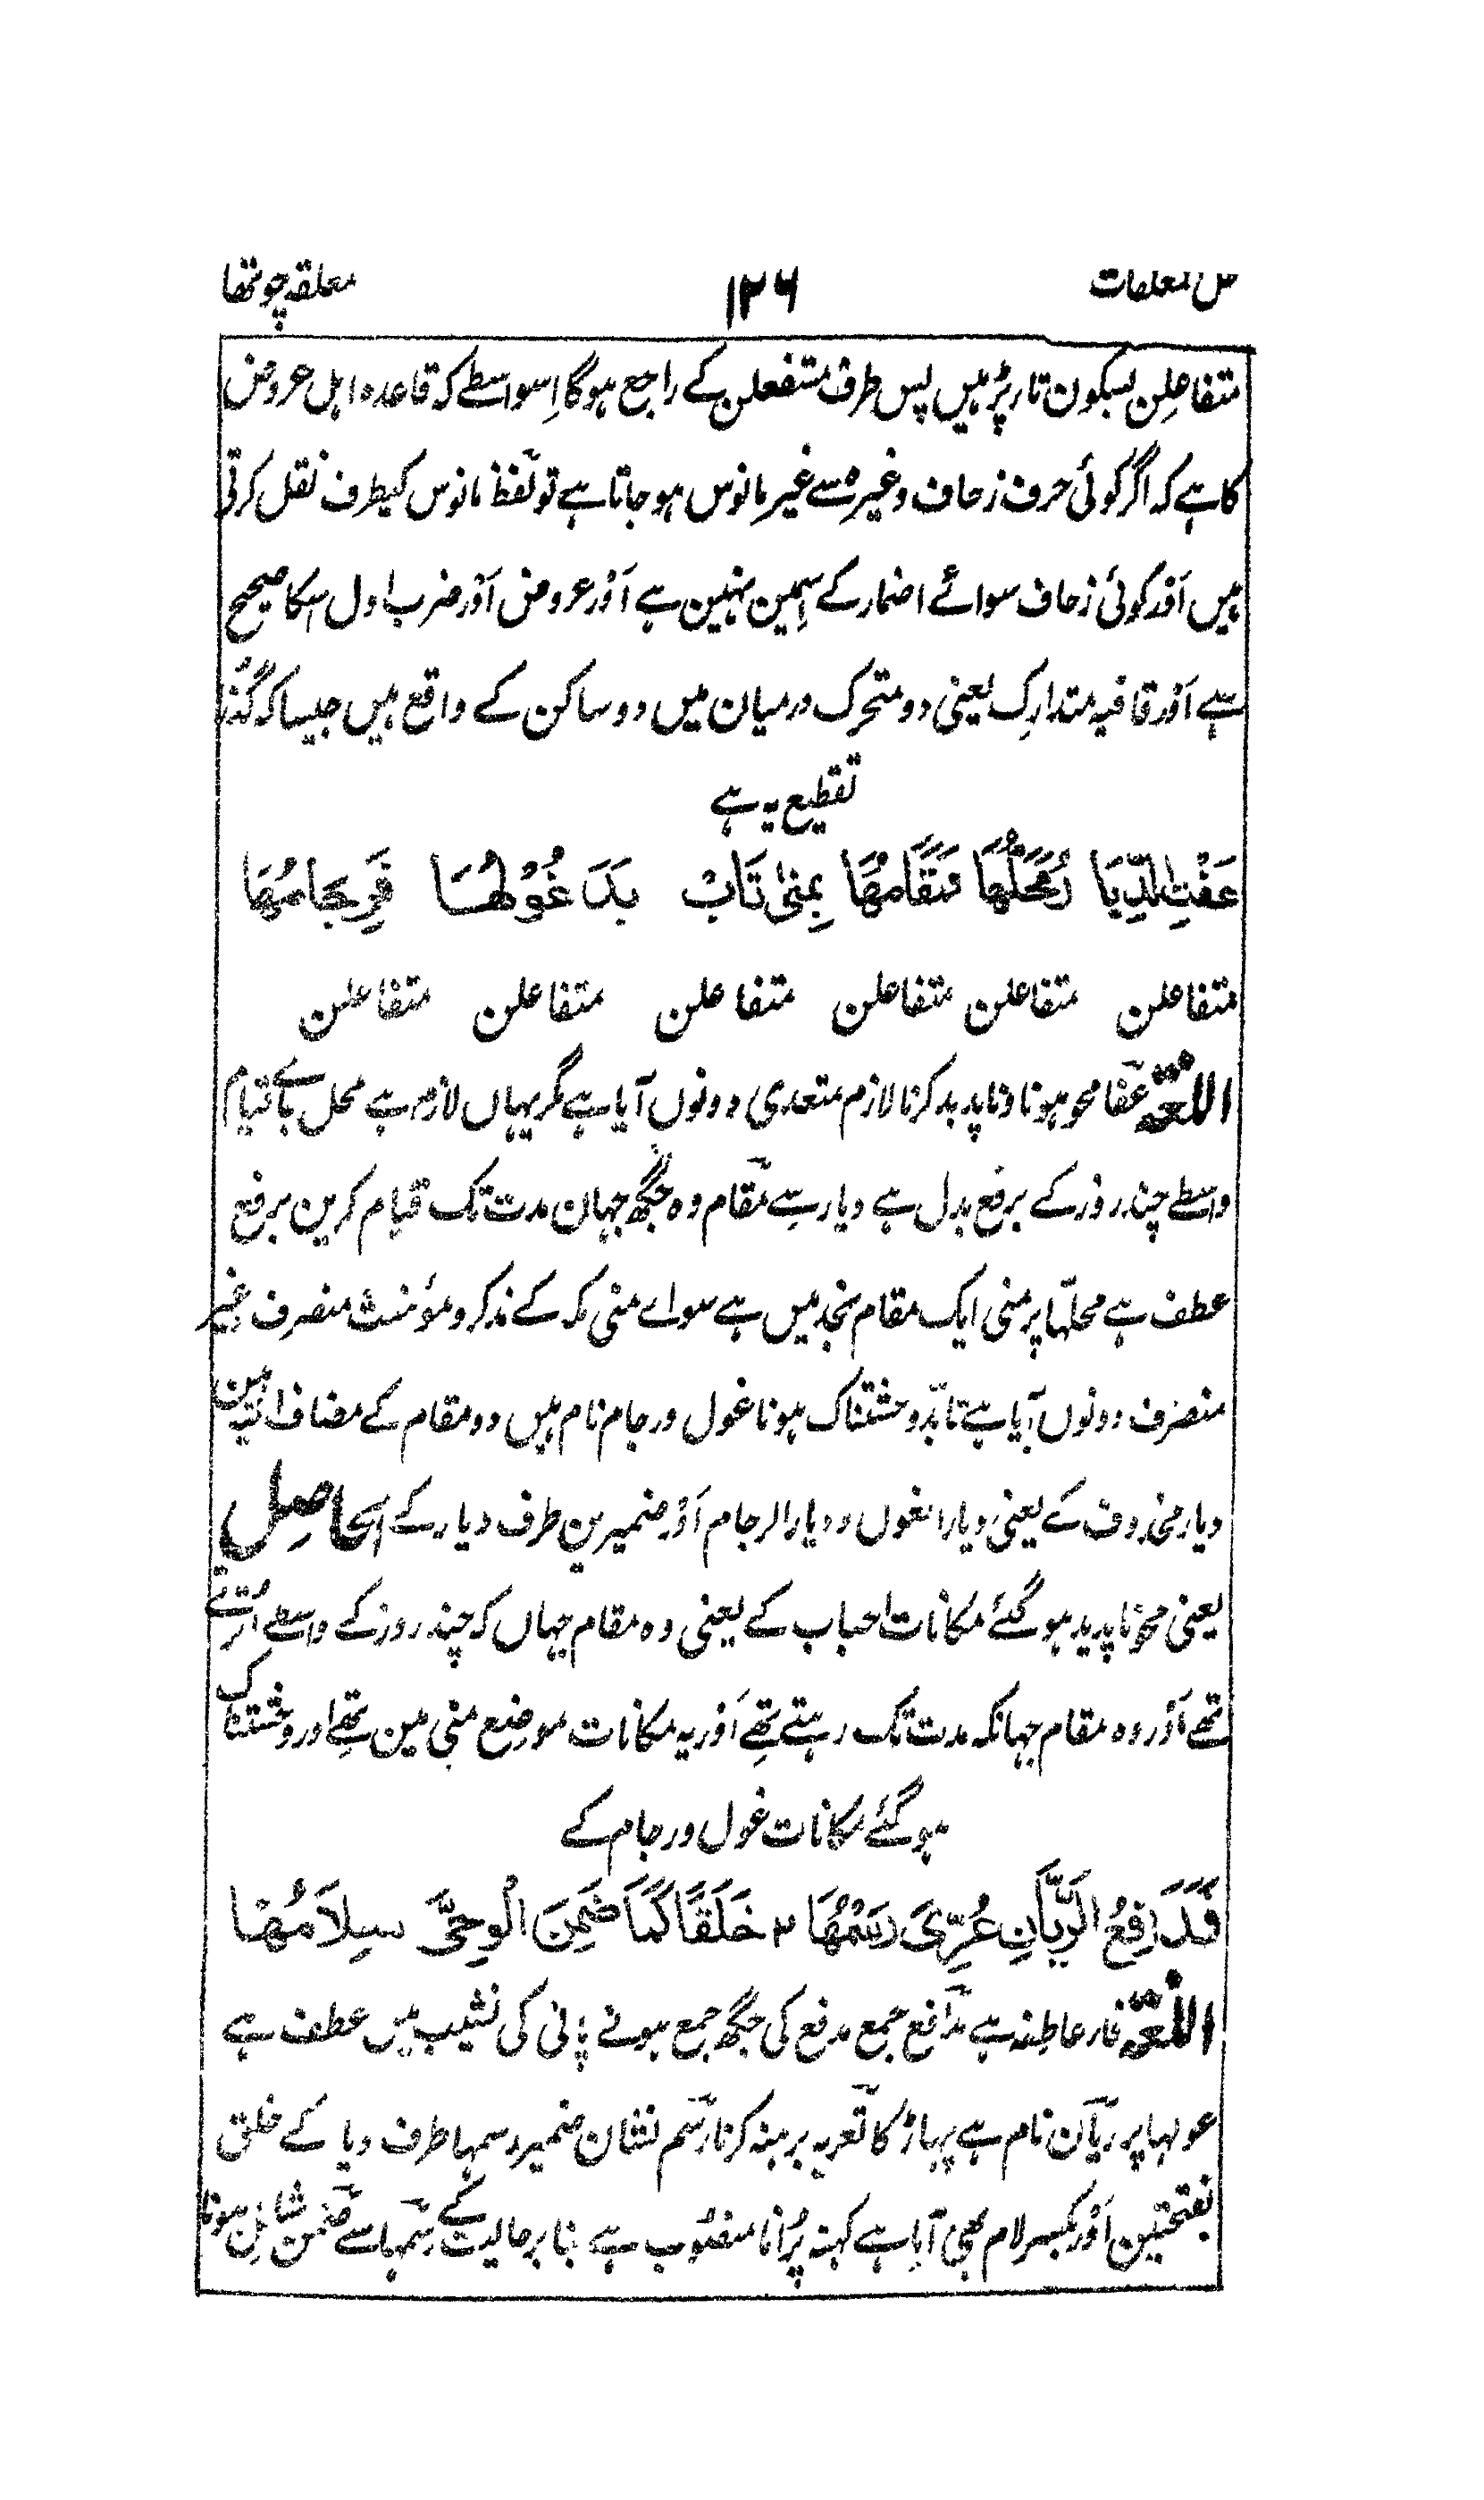 حل المعلقات ۱۲۶ معلقہ چوتھا
متفاعلن بسکون تا رپڑہیں پس طرف مستفعلن کے راجع ہوگا اِسواسطے کہ قاعدہ اہل عروض
کا ہے کہ اگر کوئی حرف زحاف وغیرہ سے غیر مانوس ہو جاتا ہے تو لفظ مانوس کیطرف نقل کرتی
ہیں اَور کوئی زحاف سوائے اضمار کے اِسمین نہین ہے اَور عروض اَور ضرب اول اسکا صحیح
ہے اَور قافیہ متدارِک یعنی دو متحرک درمیان میں دو ساکن کے واقع ہیں جیسا کہ گذُرا
تقطیع یہ ہے
عَفَتِ الدِّیَا رُمَحَلُّهَا مَقَامُهَا بِمِنیٰ تَابْ بَدَ غَوْلُهَا فَرِجَامُهَا
متفاعلن متفاعلن متفاعلن متفاعلن متفاعلن متفاعلن
اللغۃ عَفا محو ہونا و ناپدید کرنا لازم متعدی دونوں آیا ہے مگر یہاں لازم ہے محل جائے قیام
واسطے چند روز کے برفع بدل ہے دیار سے مَقام وہ جگھ جہان مدت تک قیام کرین برفع
عطف ہے محلہا پر منی ایک مقام نجد میں ہے سواے منی مکہ کے مذکر و مؤنث منصرف غیر
منصرف دونوں آیا ہے تابّد وحشتناک ہونا غول ورجام نام ہیں دو مقام کے مضاف الیہ ہین
دیار محذوف کے یعنی دیار الغول و دیار الرجام اَور ضمیرین طرف دیار کے الحَاصِل
یعنی محو ناپدید ہو گئے مکانات احباب کے یعنی وہ مقام جہاں کہ چند روز کے واسطے اُترتے
تھے اَور وہ مقام جہانکہ مدت تک رہتے تھے اَور یہ مکانات موضع منی مین تھے اور وحشتناک
ہو گئے مکانات غول ورجام کے
فَمَدَافِعُ الرَّیَّانِ عُرِّیَ رَسْمُهَا ۲ خَلَقًا کَمَا ضَمِنَ الْوُحِیَّ سِلَامُهَا
اللغۃ فار عاطفہ ہے مَدافع جمع مدفع کی جگھ جمع ہونے پانی کی نشیب میں عطف ہے
غولہا پر ریّان نام ہے پہاڑ کا تَعریہ برہنہ کرنا رَسم نشان ضمیر رسمہا طرف دیا کے خلق
بفتحتین اَور بکسر لام بھی آیا ہے کہنہ پُرانا منصوب ہے بنا بر حالیت کے رسمہا سے ضَمن شامل ہونا